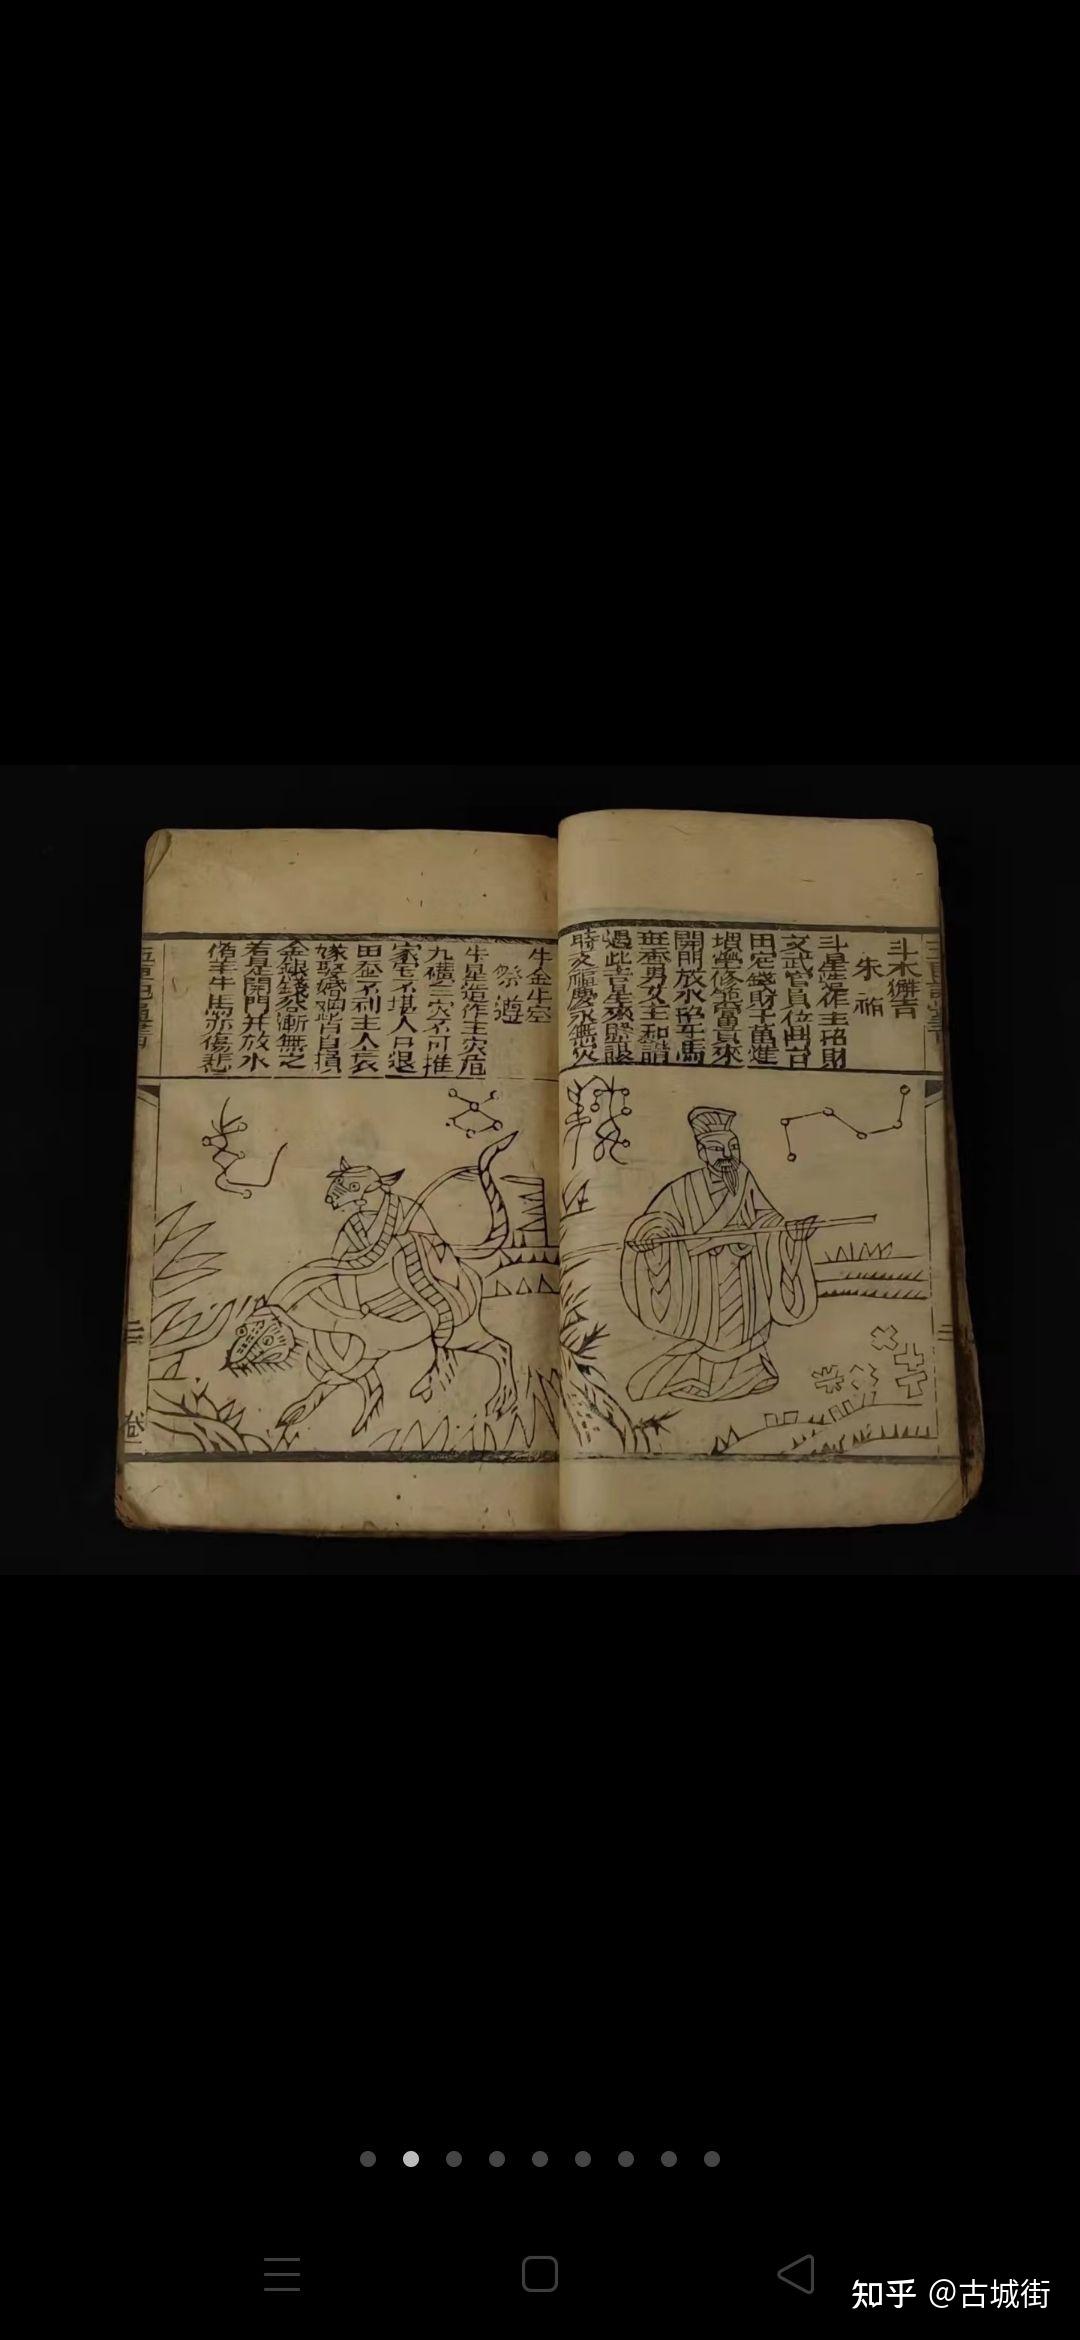 斗木獬吉
朱祐
斗星造作主招財
文武官員位𦥯台
田宅錢財千萬進
墳塋修築富貴來
開門放水招牛馬
旺蚕男女主和諧
遇此吉星來照護
時支福慶永無災
牛金牛凶
祭遵
牛星造作主災危
九横三災不可推
家宅不堪人口退
田蚕不利主人衰
嫁娶婚姻皆自損
金銀錢谷漸無之
若是開門并放水
猪羊牛馬亦傷悲
二
卷一
知乎 @古城街